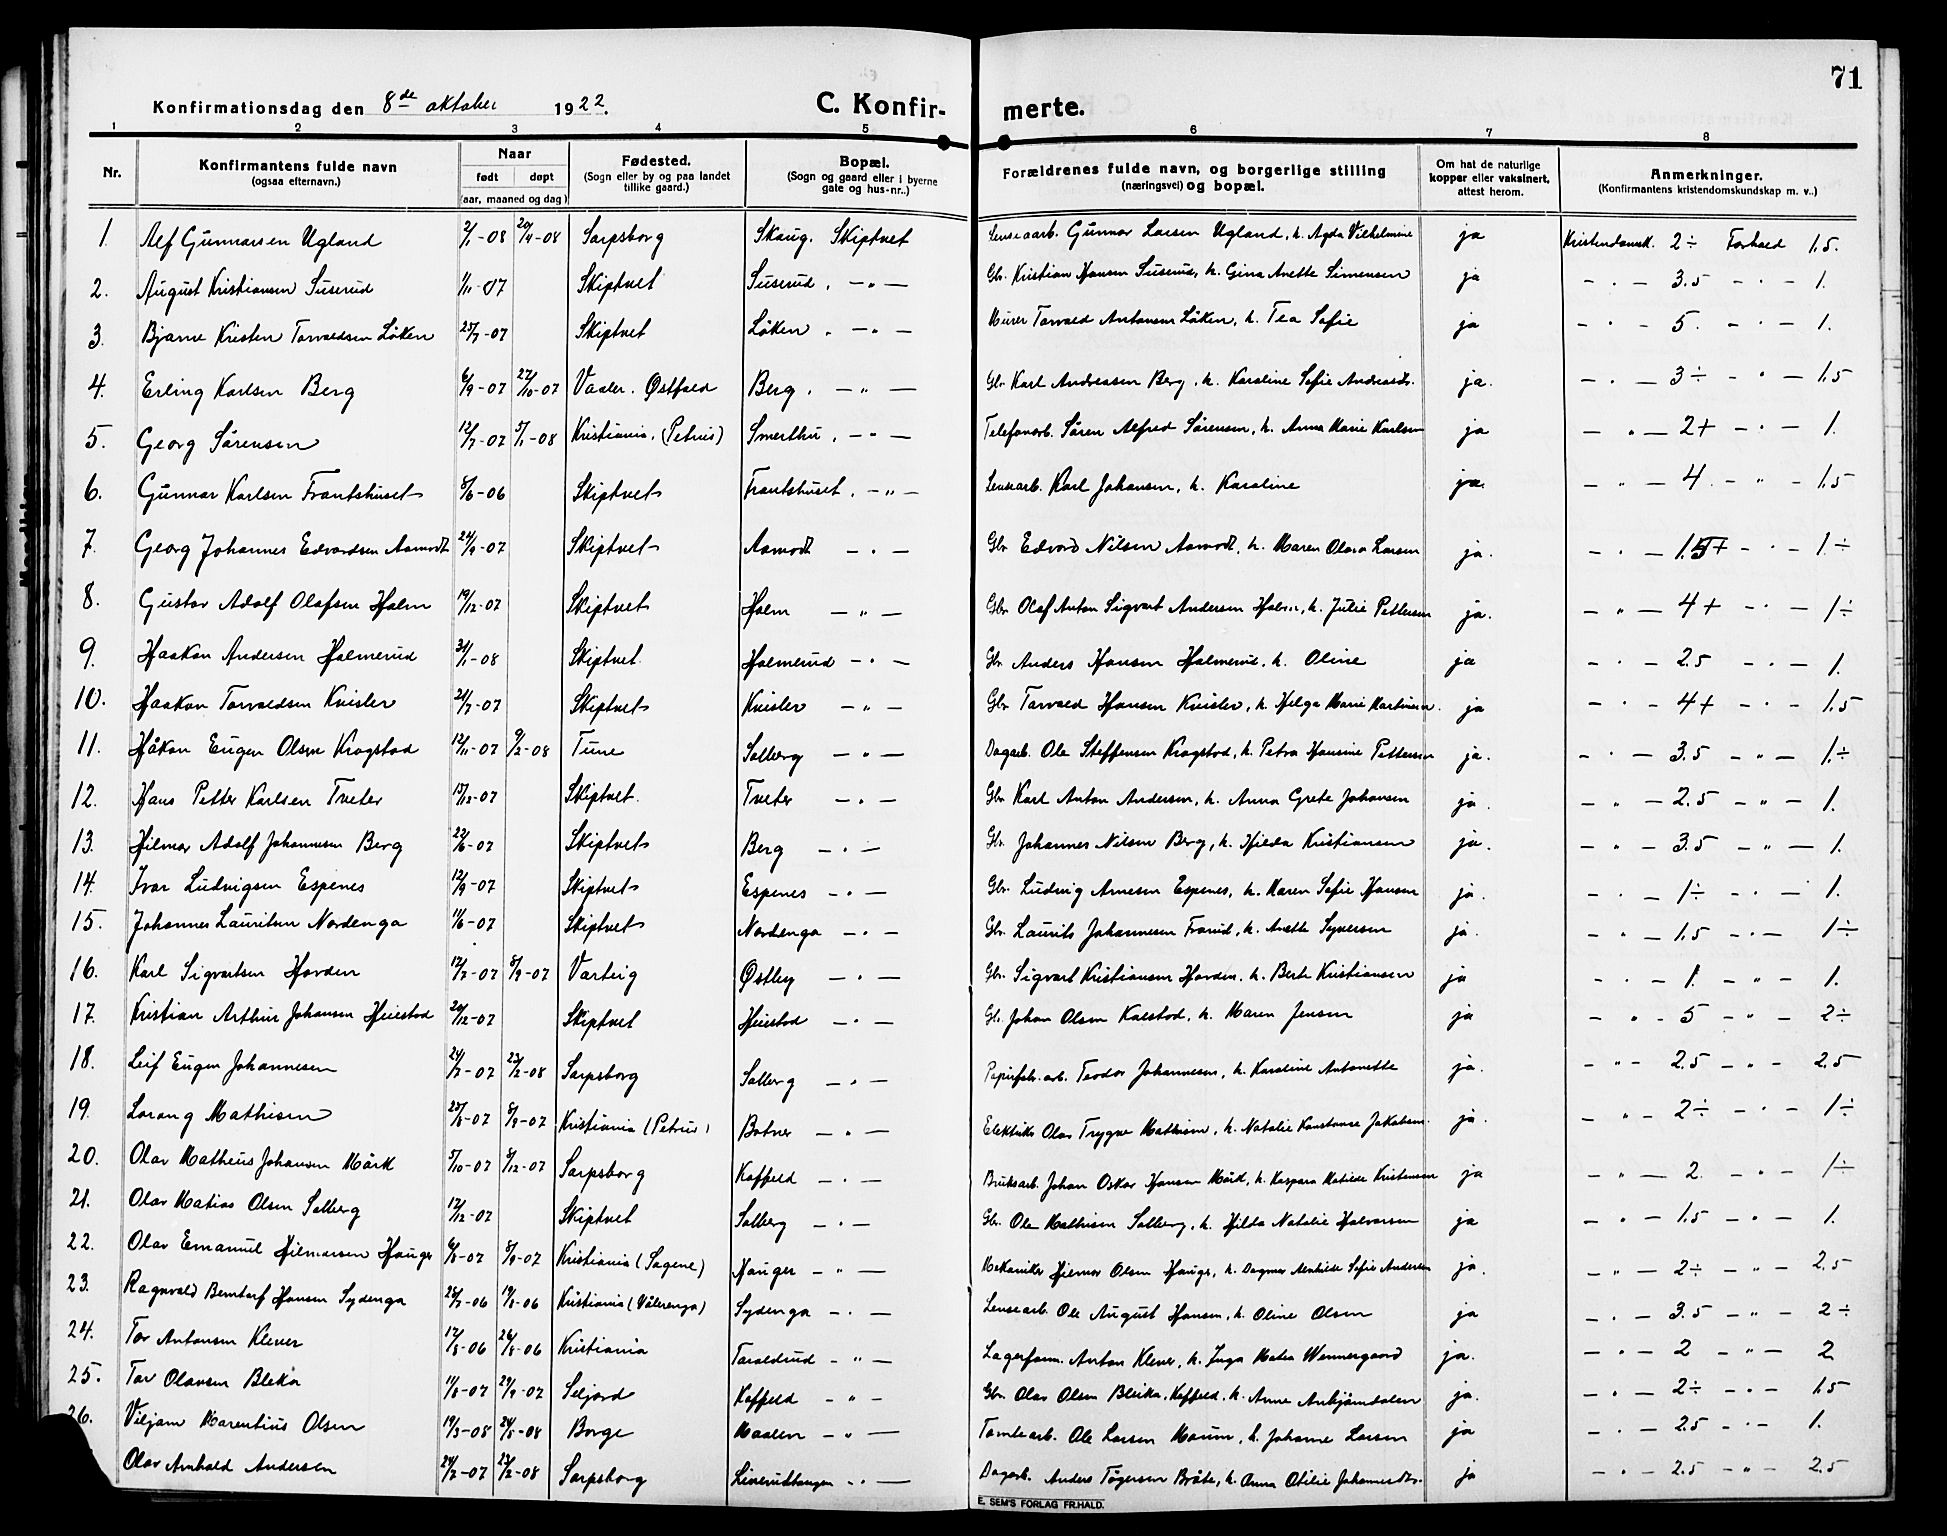 71
Konfirmationsdag den 8de oktober 1922.
C. Konfirmerte.
1 2 3 4 5 6 7 8
Nr. Konfirmantens fulde navn (ogsaa efternavn.) Naar født døpt (aar, maaned og dag) Fødested. (Sogn eller by og paa landet tillike gaard.) Bopæl. (Sogn og gaard eller i byerne gate og hus-nr..) Forældrenes fulde navn, og borgerlige stilling (næringsvei) og bopæl. Om hat de naturlige kopper eller vaksinert, attest herom. Anmerkninger. (Konfirmantens kristendomskundskap m. v..)
1. Alf Gunnarsen Ugland 2/1-08 20/4-08 Sarpsborg Skaug. Skiptvet Lensearb. Gunnar Larsen Ugland, h. Agda Vilhelmine ja Kristendomsk. 2÷ Forhold 1.5.
2. August Kristiansen Suserud 1/11-07 Skiptvet Suserud. —"— Gbr. Kristian Hansen Suserud, h. Gina Anette Simensen ja — " — 3.5 — " — 1.
3. Bjarne Kristen Torvaldsen Løken 25/7-07 Skiptvet Løken. —"— Murer Torvald Antonsen Løken, h. Tea Sofie ja — " — 5. — " — 1.
4. Erling Karlsen Berg 6/9-07 27/10-07 Vaaler. Østfold Berg. —"— Gbr. Karl Andreasen Berg, h. Karoline Sofie Andreasdr. ja. — " — 3÷ — " — 1.5
5. Georg Sørensen 12/7-07 5/1-08 Kristiania. (Petrus) Smerthu. —"— Telefonarb. Søren Alfred Sørensen, h. Anna Marie Karlsen ja — " — 2+ — " — 1.
6. Gunnar Karlsen Frantshuset 8/6-06 Skiptvet Frantshuset. —"— Lensearb. Karl Johansen, h. Karoline ja. — " — 4. — " — 1.5
7. Georg Johannes Edvardsen Aamodt 24/9-07 Skiptvet Aamodt —"— Gbr. Edvard Nilsen Aamodt, h. Maren Olava Larsen ja. — " — 1.5+ — " — 1÷
8. Gustav Adolf Olafsen Holm 19/12-07 Skiptvet Holm —"— Gbr. Olaf Anton Sigvart Andersen Holm, h. Julie Pettersen ja. — " — 4+ — " — 1÷
9. Haakon Andersen Holmerud 31/1-08 Skiptvet. Holmerud —"— Gbr. Anders Hansen Holmerud, h. Oline ja — " — 2.5 — " — 1.
10. Haakon Torvaldsen Kvisler 21/7-07 Skiptvet Kvisler —"— Gbr. Torvald Hansen Kvisler, h. Helga Marie Martinsen. ja — " — 4+ — " — 1.5
11. Håkon Eugen Olsen Krogstad 12/11-07 9/2-08 Tune Solberg —"— Dagarb. Ole Steffensen Krogstad, h. Petra Hansine Pettersen ja. — " — 3.5 — " — 1.÷
12. Hans Petter Karlsen Tveter 15/12-07 Skiptvet. Tveter —"— Gbr. Karl Anton Andersen, h. Anna Grete Johansen ja. — " — 2.5 — " — 1.
13. Hilmar Adolf Johannesen Berg 22/6-07 Skiptvet Berg —"— Gbr. Johannes Nilsen Berg, h. Hilda Kristiansen ja. — " — 3.5 — " — 1.
14. Ivar Ludvigsen Espenes 12/9-07 Skiptvet Espenes —"— Gbr. Ludvig Arnesen Espenes, h. Maren Sofie Hansen ja. — " — 1÷ — " — 1.
15. Johannes Lauritsen Nordenga 11/6-07 Skiptvet Nordenga —"— Gbr. Laurits Johannesen, h. Anette Syversen ja. — " — 1.5 — " — 1÷
16. Karl Sigvartsen Hovden 12/7-07 8/9-07 Varteig Østby —"— Gbr. Sigvart Kristiansen Hovden, h. Berte Kristiansen ja — " — 1. — " — 1.
17. Kristian Arthur Johansen Heiestad 20/12-07 Skiptvet Heiestad —"— Gbr. Johan Olsen Kalstad, h. Maren Jensen ja — " — 5 — " — 2÷
18. Leif Eugen Johannesen 24/7-07 23/2-08 Sarpsborg Solberg —"— Papirfab. arb. Teodor Johannesen, h. Karoline Antonette ja. — " — 2.5 — " — 2.5
19. Lorang Mathisen 25/5-07 8/9-07 Kristiania (Petrus) Botner —"— Elektriker Olav Trygve Mathisen, h. Natalie Konstanse Jakobsen. ja. — " — 2÷ — " — 1÷
20. Olav Matheus Johansen Mörk 5/10-07 8/12-07 Sarpsborg Koffeld —"— Bruksarb. Johan Oskar Hansen, h. Kaspara Matilde Kristensen ja — " — 2. — " — 1÷
21. Olav Matias Olsen Solberg 12/12-07 Skiptvet Solberg —"— Gbr. Ole Mathisen Solberg, h. Hilda Natalie Halvorsen ja — " — 1.5 — " — 1.
22. Olav Emanuel Hilmarsen Hauger 6/8-07 8/9-07 Kristiania (Sagene) Hauger —"— Mekaniker Hilmar Olsen Hauge, h. Dagmar Sofie Andersen ja. — " — 2÷ — " — 2.5
23. Ragnvald Hansen Sydenga 28/7-06 19/8-06 Kristiania (Vålerenga) Sydenga —"— Lensearb. Ole August Hansen, h. Oline Olsen ja — " — 3.5 — " — 2÷
24. Tor Antonsen Klever 17/5-06 26/8-06 Kristiania Toraldrud —"— Lagerform. Anton Klever, h. Inga Wennergaard ja. — " — 2 — " — 2
25. Tor Olavsen Bleka 11/8-07 29/9-07 Seljord Koffeld —"— Gbr. Olav Olsen Bleika, Koffeld, h. Anne ja. — " — 2÷ — " — 1.5
26. Viljam Marentius Olsen 19/3-08 24/5-08 Borge Maalen —"— Tomtearb. Ole Larsen, h. Johanne Larsen ja — " — 2.5 — " — 1.
Olav Arnhold Andersen 24/7-07 23/2-08 Sarpsborg —"— Dagarb. Anders Bråte, h. Anna Otilie ja — " — 2.5 — " — 2.5
E. SEM'S FORLAG FR.HALD.